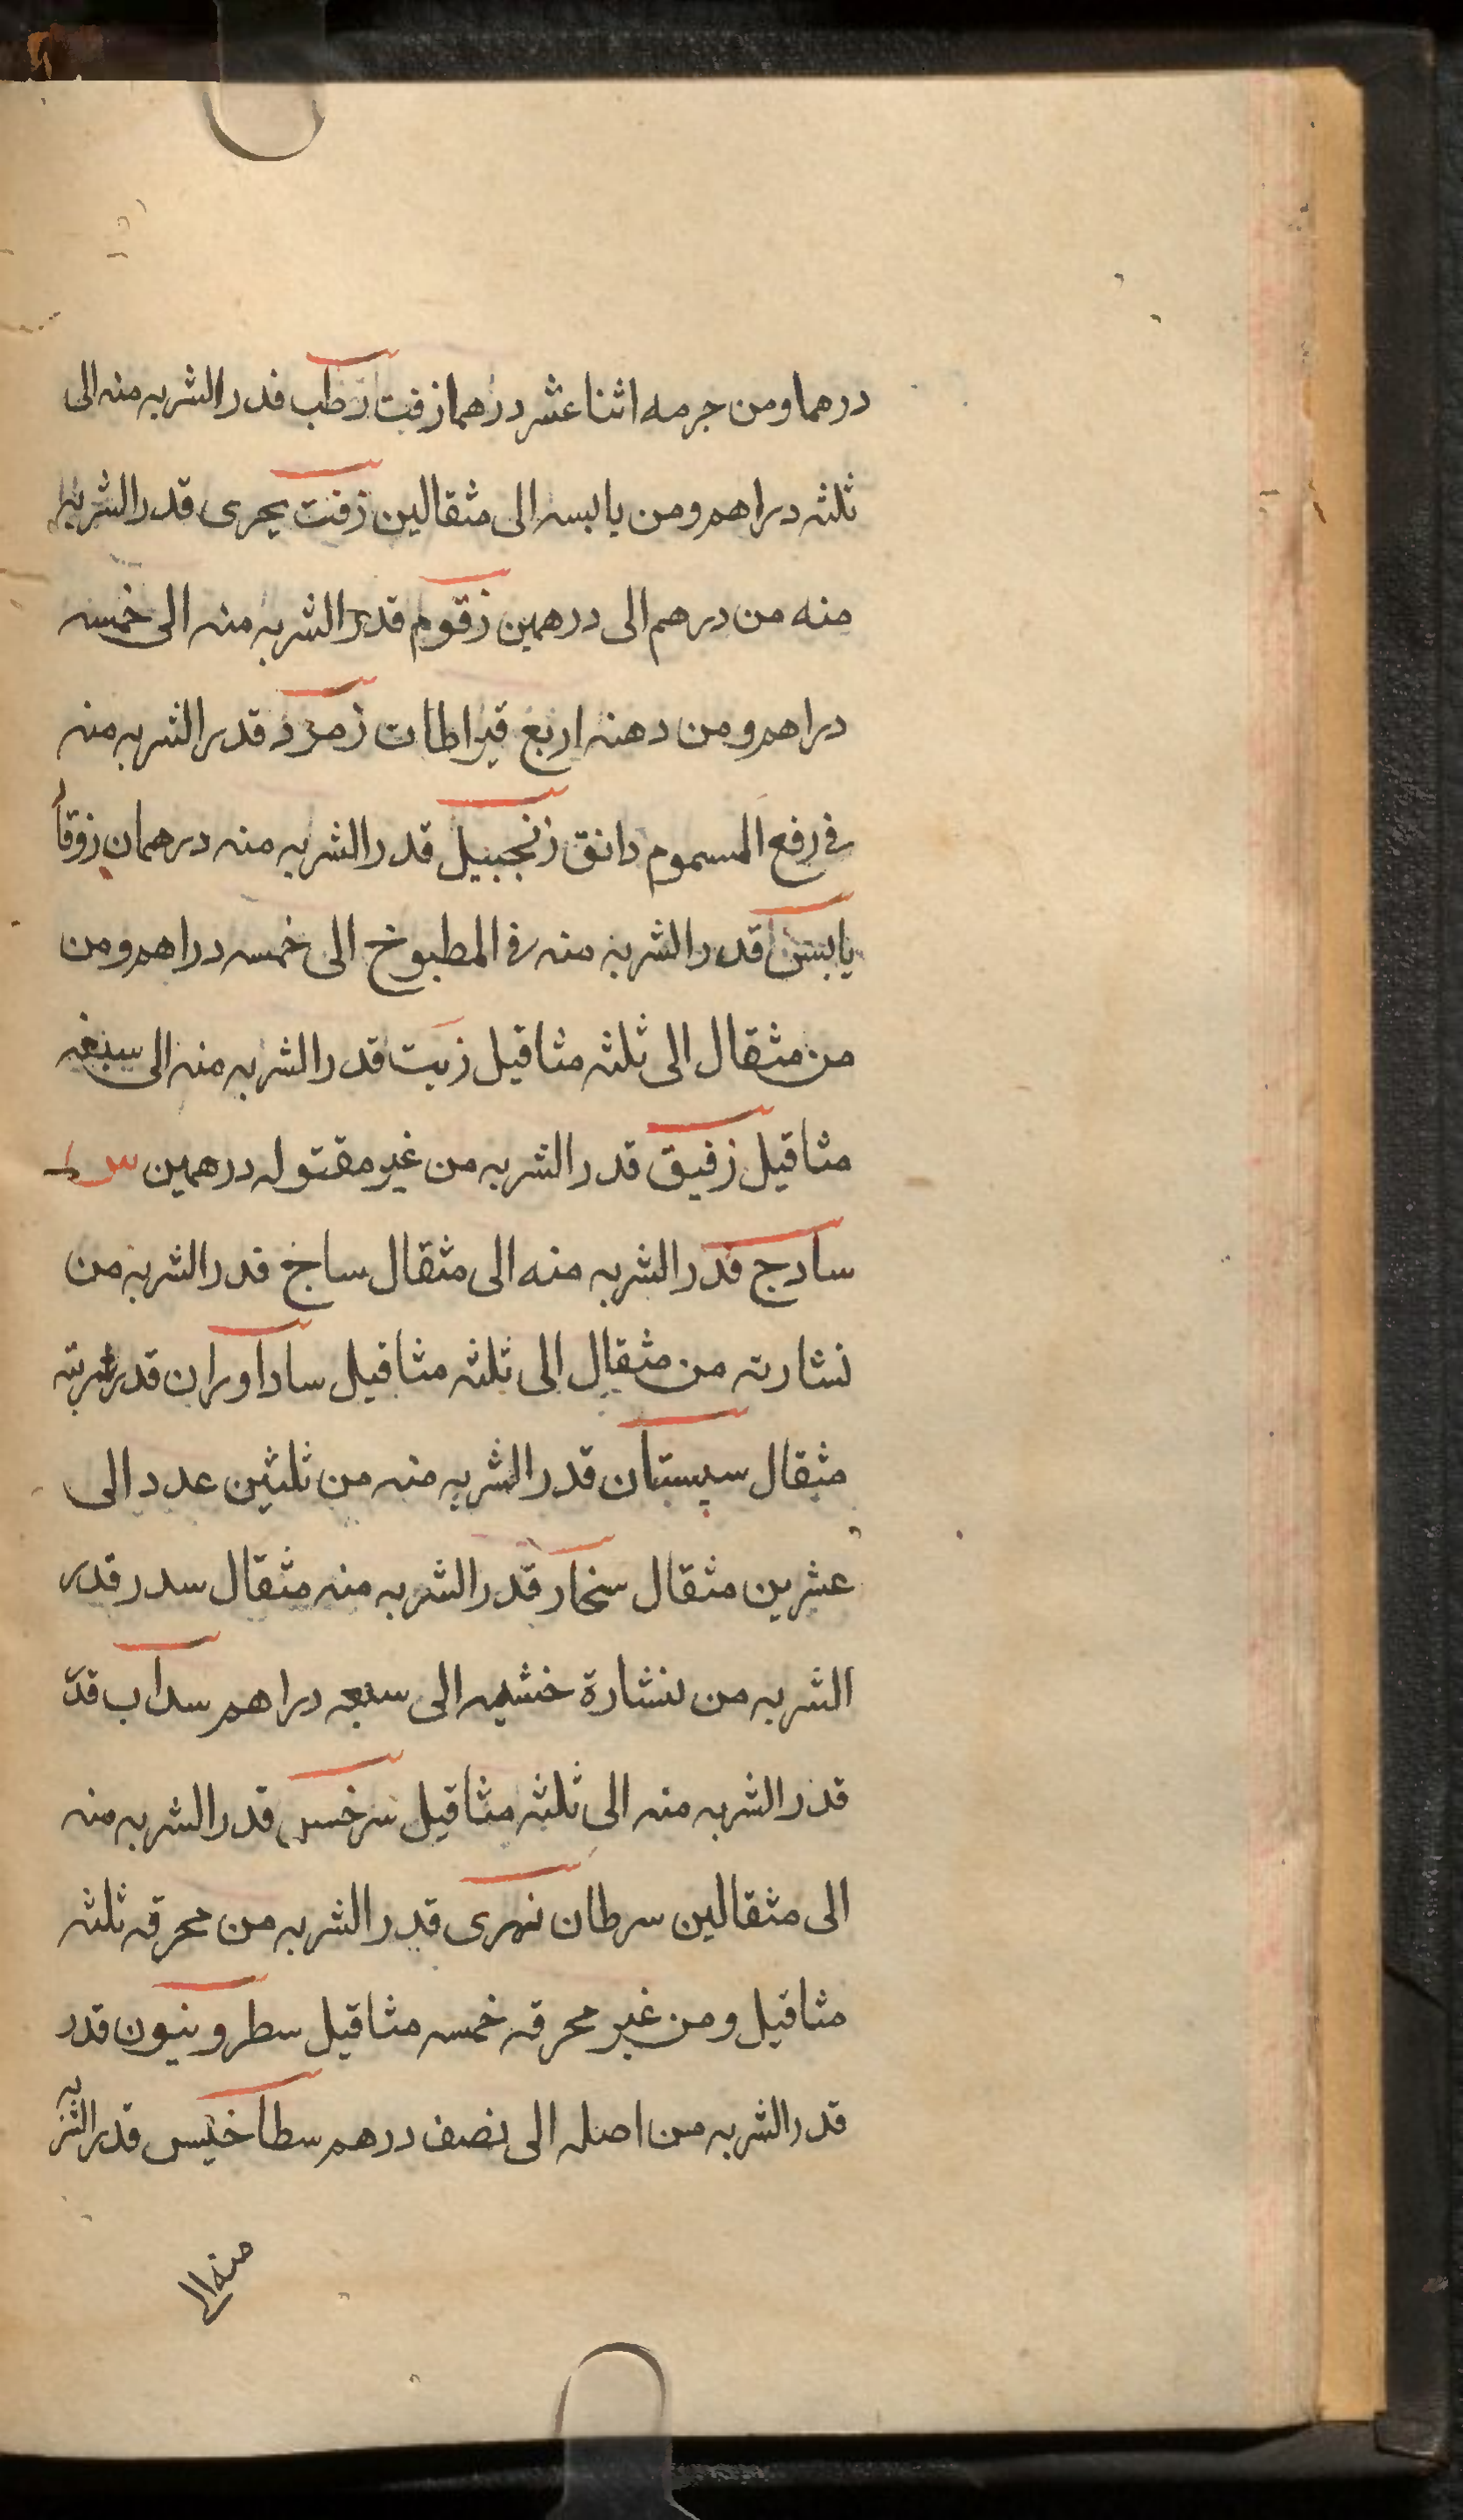 درهما ومن جرمه اثنا عشر درهما زفت رطب قدر الشربه منه الى
ثلثه دراهم ومن يابسه الى مثقالين زفت بحرى قدر الشربه
منه من درهم الى درهمين زقوم قدر الشربه منه الى خمسه
دراهم ومن دهنه اربع قيراطات زمرد قدر الشربه منه
فى رفع المسموم دانق زنجبيل قدر الشربه منه درهمان زوفا
يابس قدر الشربه منه فى المطبوخ الى خمسه دراهم ومن
من مثقال الى ثلثه مثاقيل زيت قدر الشربه منه الى سبعه
مثاقيل زفيق قدر الشربه من غير مقتوله درهمين
سادج قدر الشربه منه الى مثقال ساخ قدر الشربه من
نشارته من مثقال الى ثلثه مثاقيل ساداوران قدر شربته
مثقال سپستان قدر الشربه منه من ثلثين عدد الى
عشرين مثقال سنجار قدر الشربه منه مثقال سدر قدر
الشربه من نشارة خشبه الى سبعه دراهم سداب قد
قدر الشربه منه الى ثلثه مثاقيل سرخس قدر الشربه منه
الى مثقالين سرطان نهرى قدر الشربه من محرقه ثلثه
مثاقيل ومن غير محرقه خمسه مثاقيل سطرونيون قدر
قدر الشربه من اصله الى نصف درهم سطاخيس قدر الشربه
منه الى